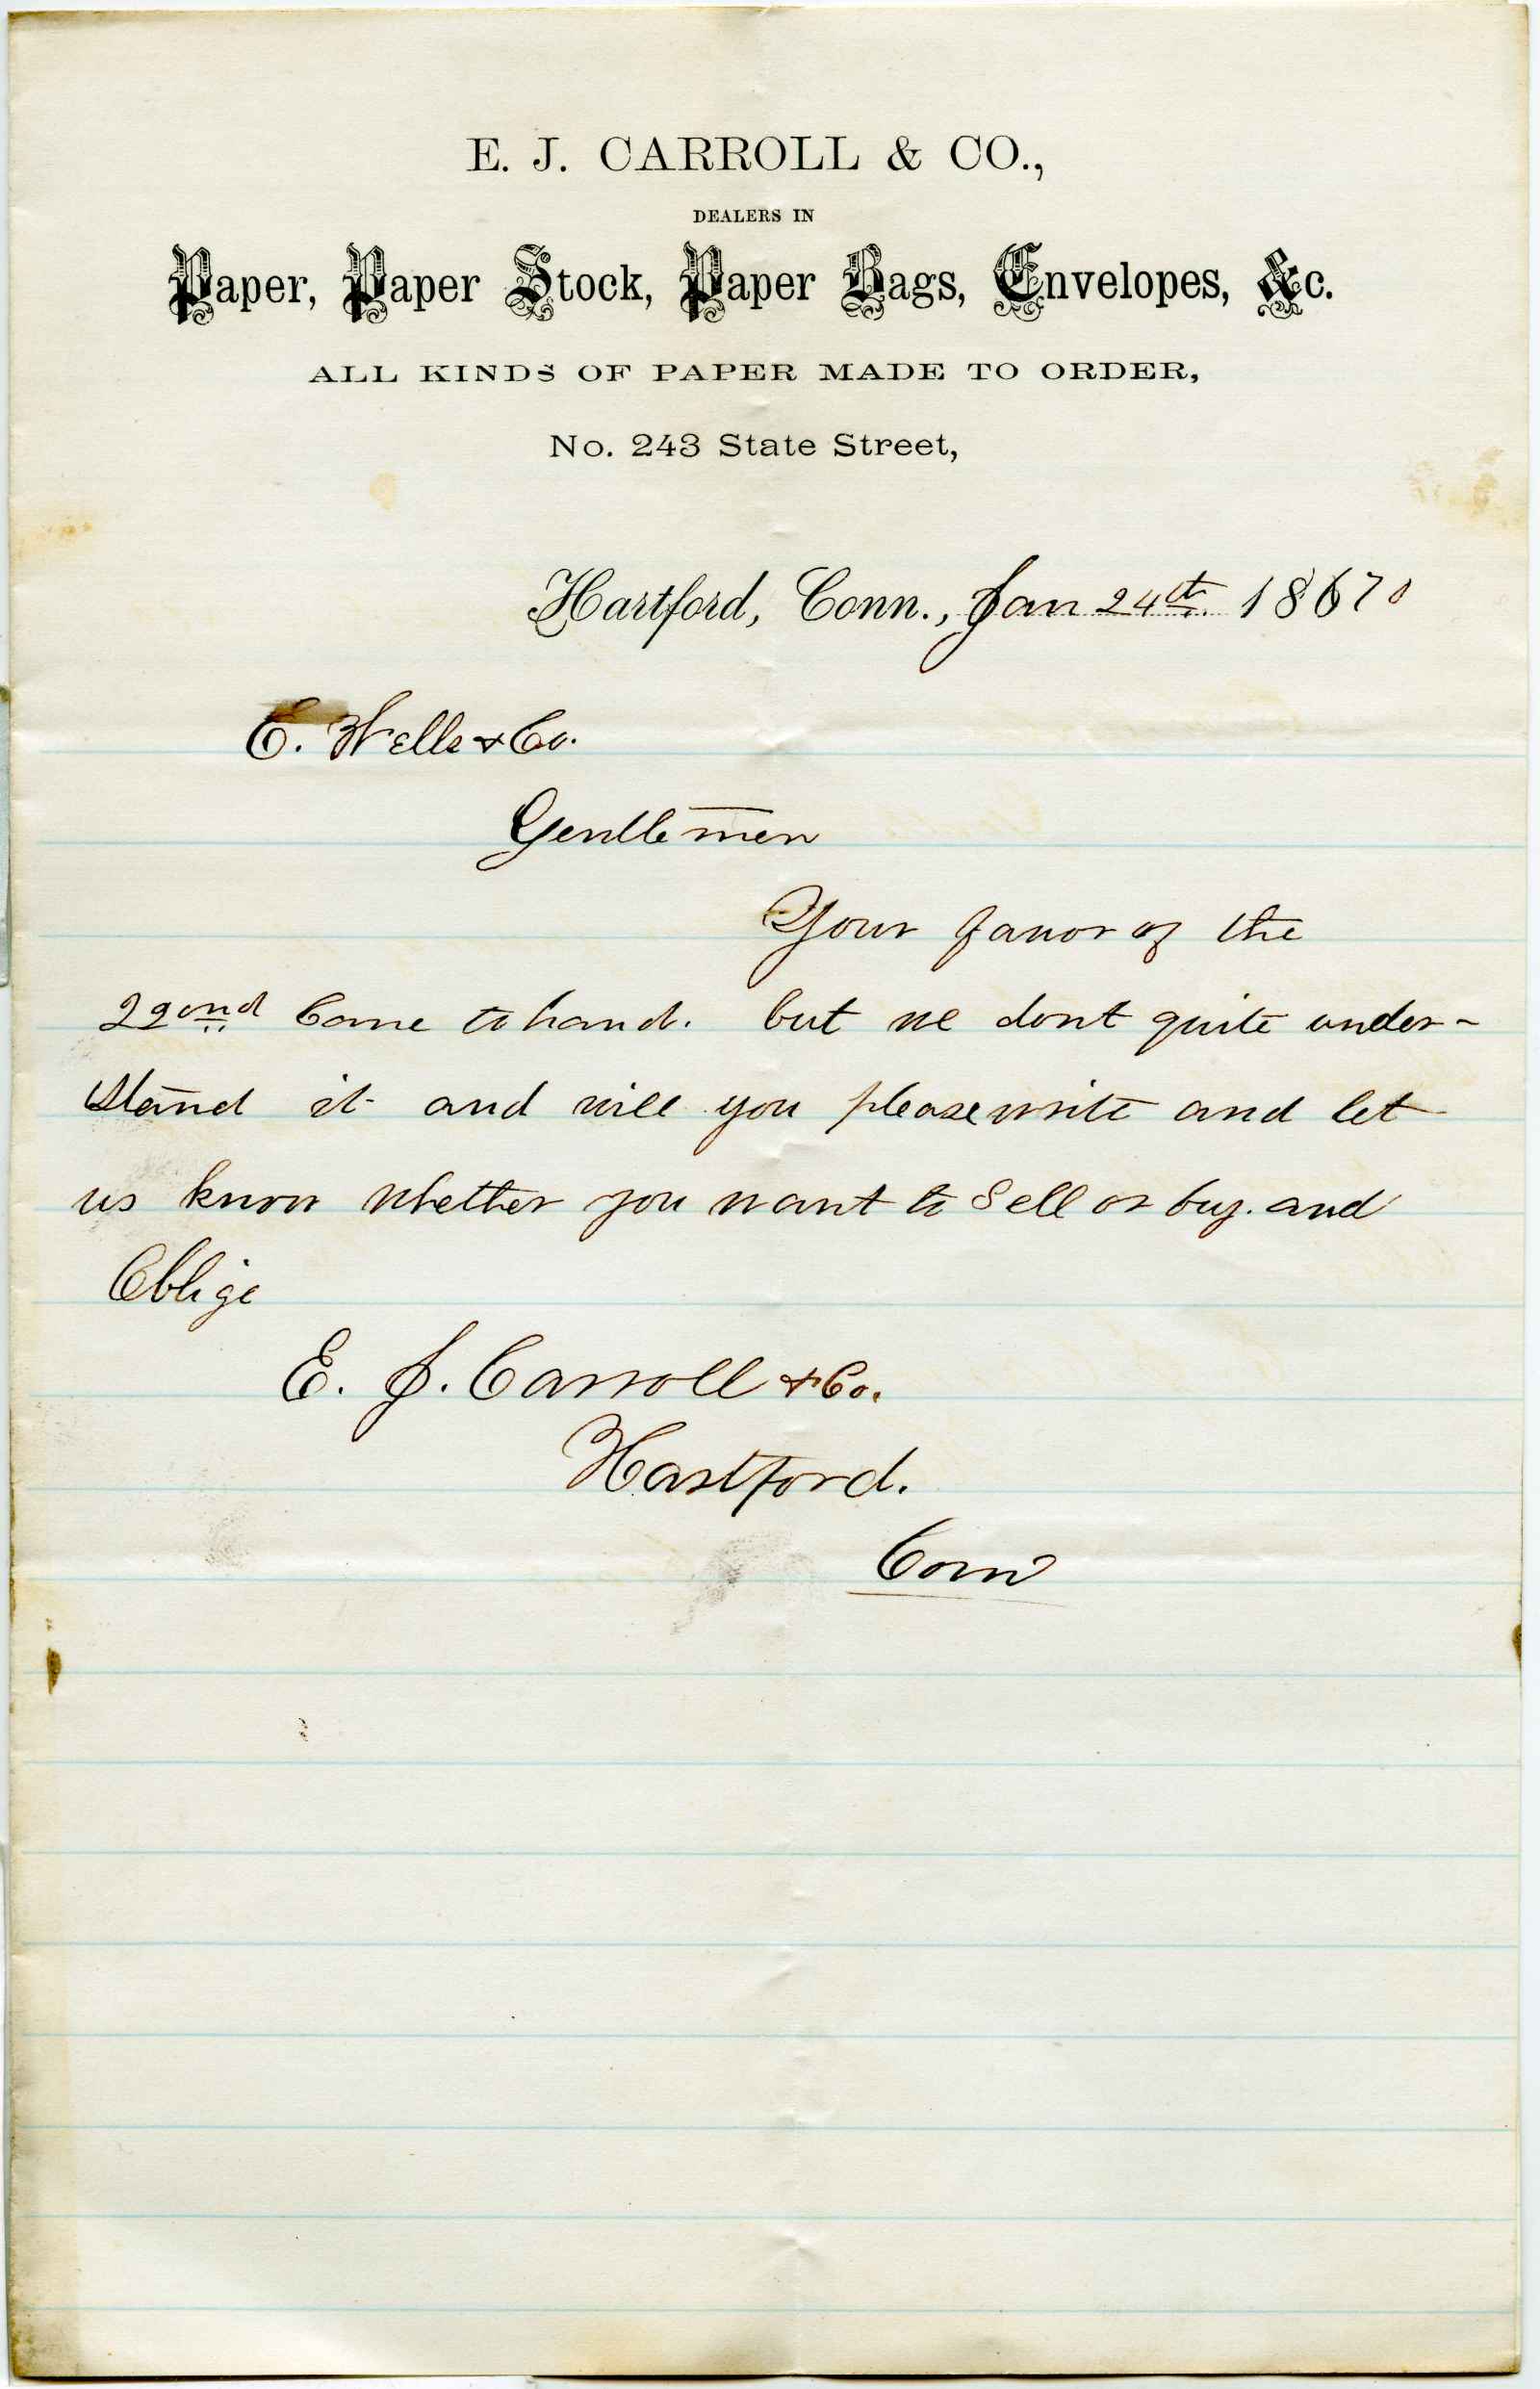 E. J. CARROLL & CO.,
DEALERS IN
Paper, Paper Stock, Paper Bags, Envelopes, &c.
ALL KINDS OF PAPER MADE TO ORDER,
No. 243 State Street,
Hartford, Conn., Jan 24th 18670
E. Wells & Co.
Gentlemen
Your favor of the
22ond Came to hand. but we dont quite under-
stand it and will you please write and let
us know whether you want to Sell or buy. and
Oblige
E. J. Carroll & Co.
Hartford.
Conn